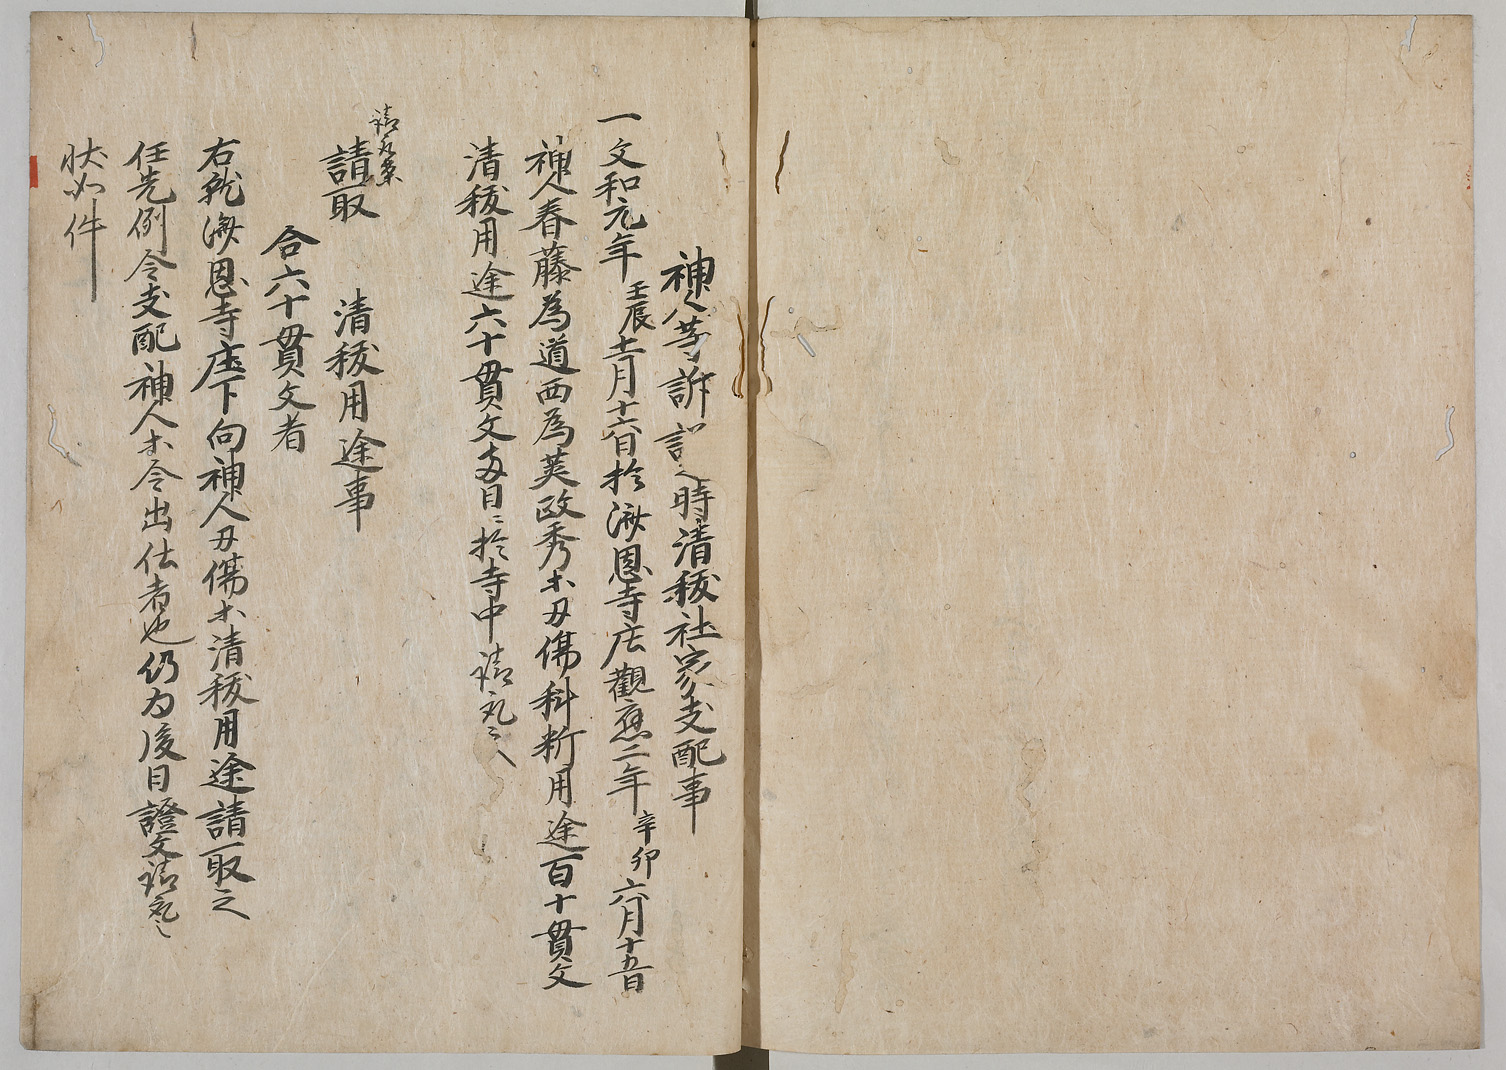 神人等訴訟之時清祓社家支配事
一文和元年壬辰十二月十六日於海恩寺庄観應二年辛卯六月十五日
神人春藤為道西為英政秀木刃傷科析用途百十貫文
清祓用途六十貫文両日ニ於寺中請取之
請取案
請取　清祓用途事
合六十貫文者
右就海恩寺庄下向神人刃傷木清祓用途請取之
任先例令支配神人木令出仕者也仍為後日證文請取之
状如件